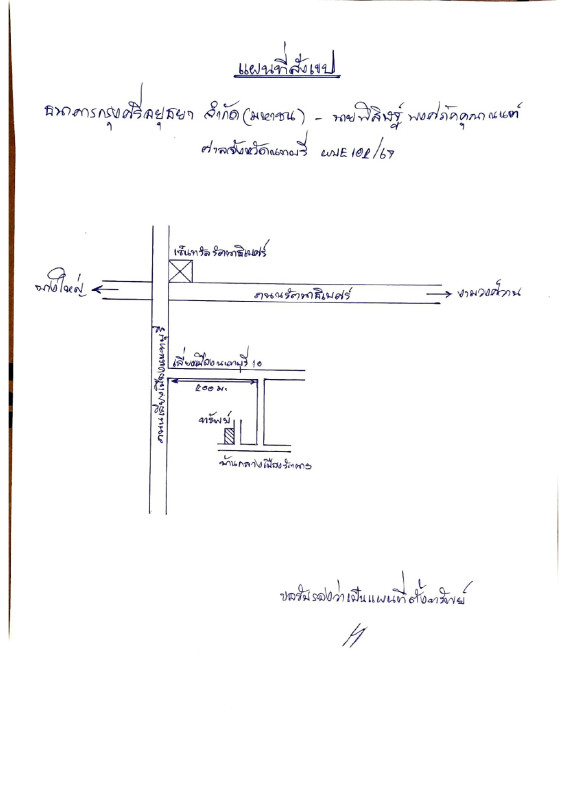 แผนที่สังเขป
ธนาคารกรุงศรีอยุธยา จำกัด (มหาชน) - นายพิสิษฐ์ พงศ์ภัคคุณานนท์
ศาลจังหวัดนนทบุรี ผบE 102/67
เซ็นทรัลรัตนาธิเบศร์
บางใหญ่
ถนนรัตนาธิเบศร์
งามวงศ์วาน
ถนนเลี่ยงเมืองนนทบุรี
เลี่ยงเมืองนนทบุรี 10
200 ม.
ทรัพย์
บ้านกลางเมือง
ขอรับรองว่าเป็นแผนที่ตั้งทรัพย์